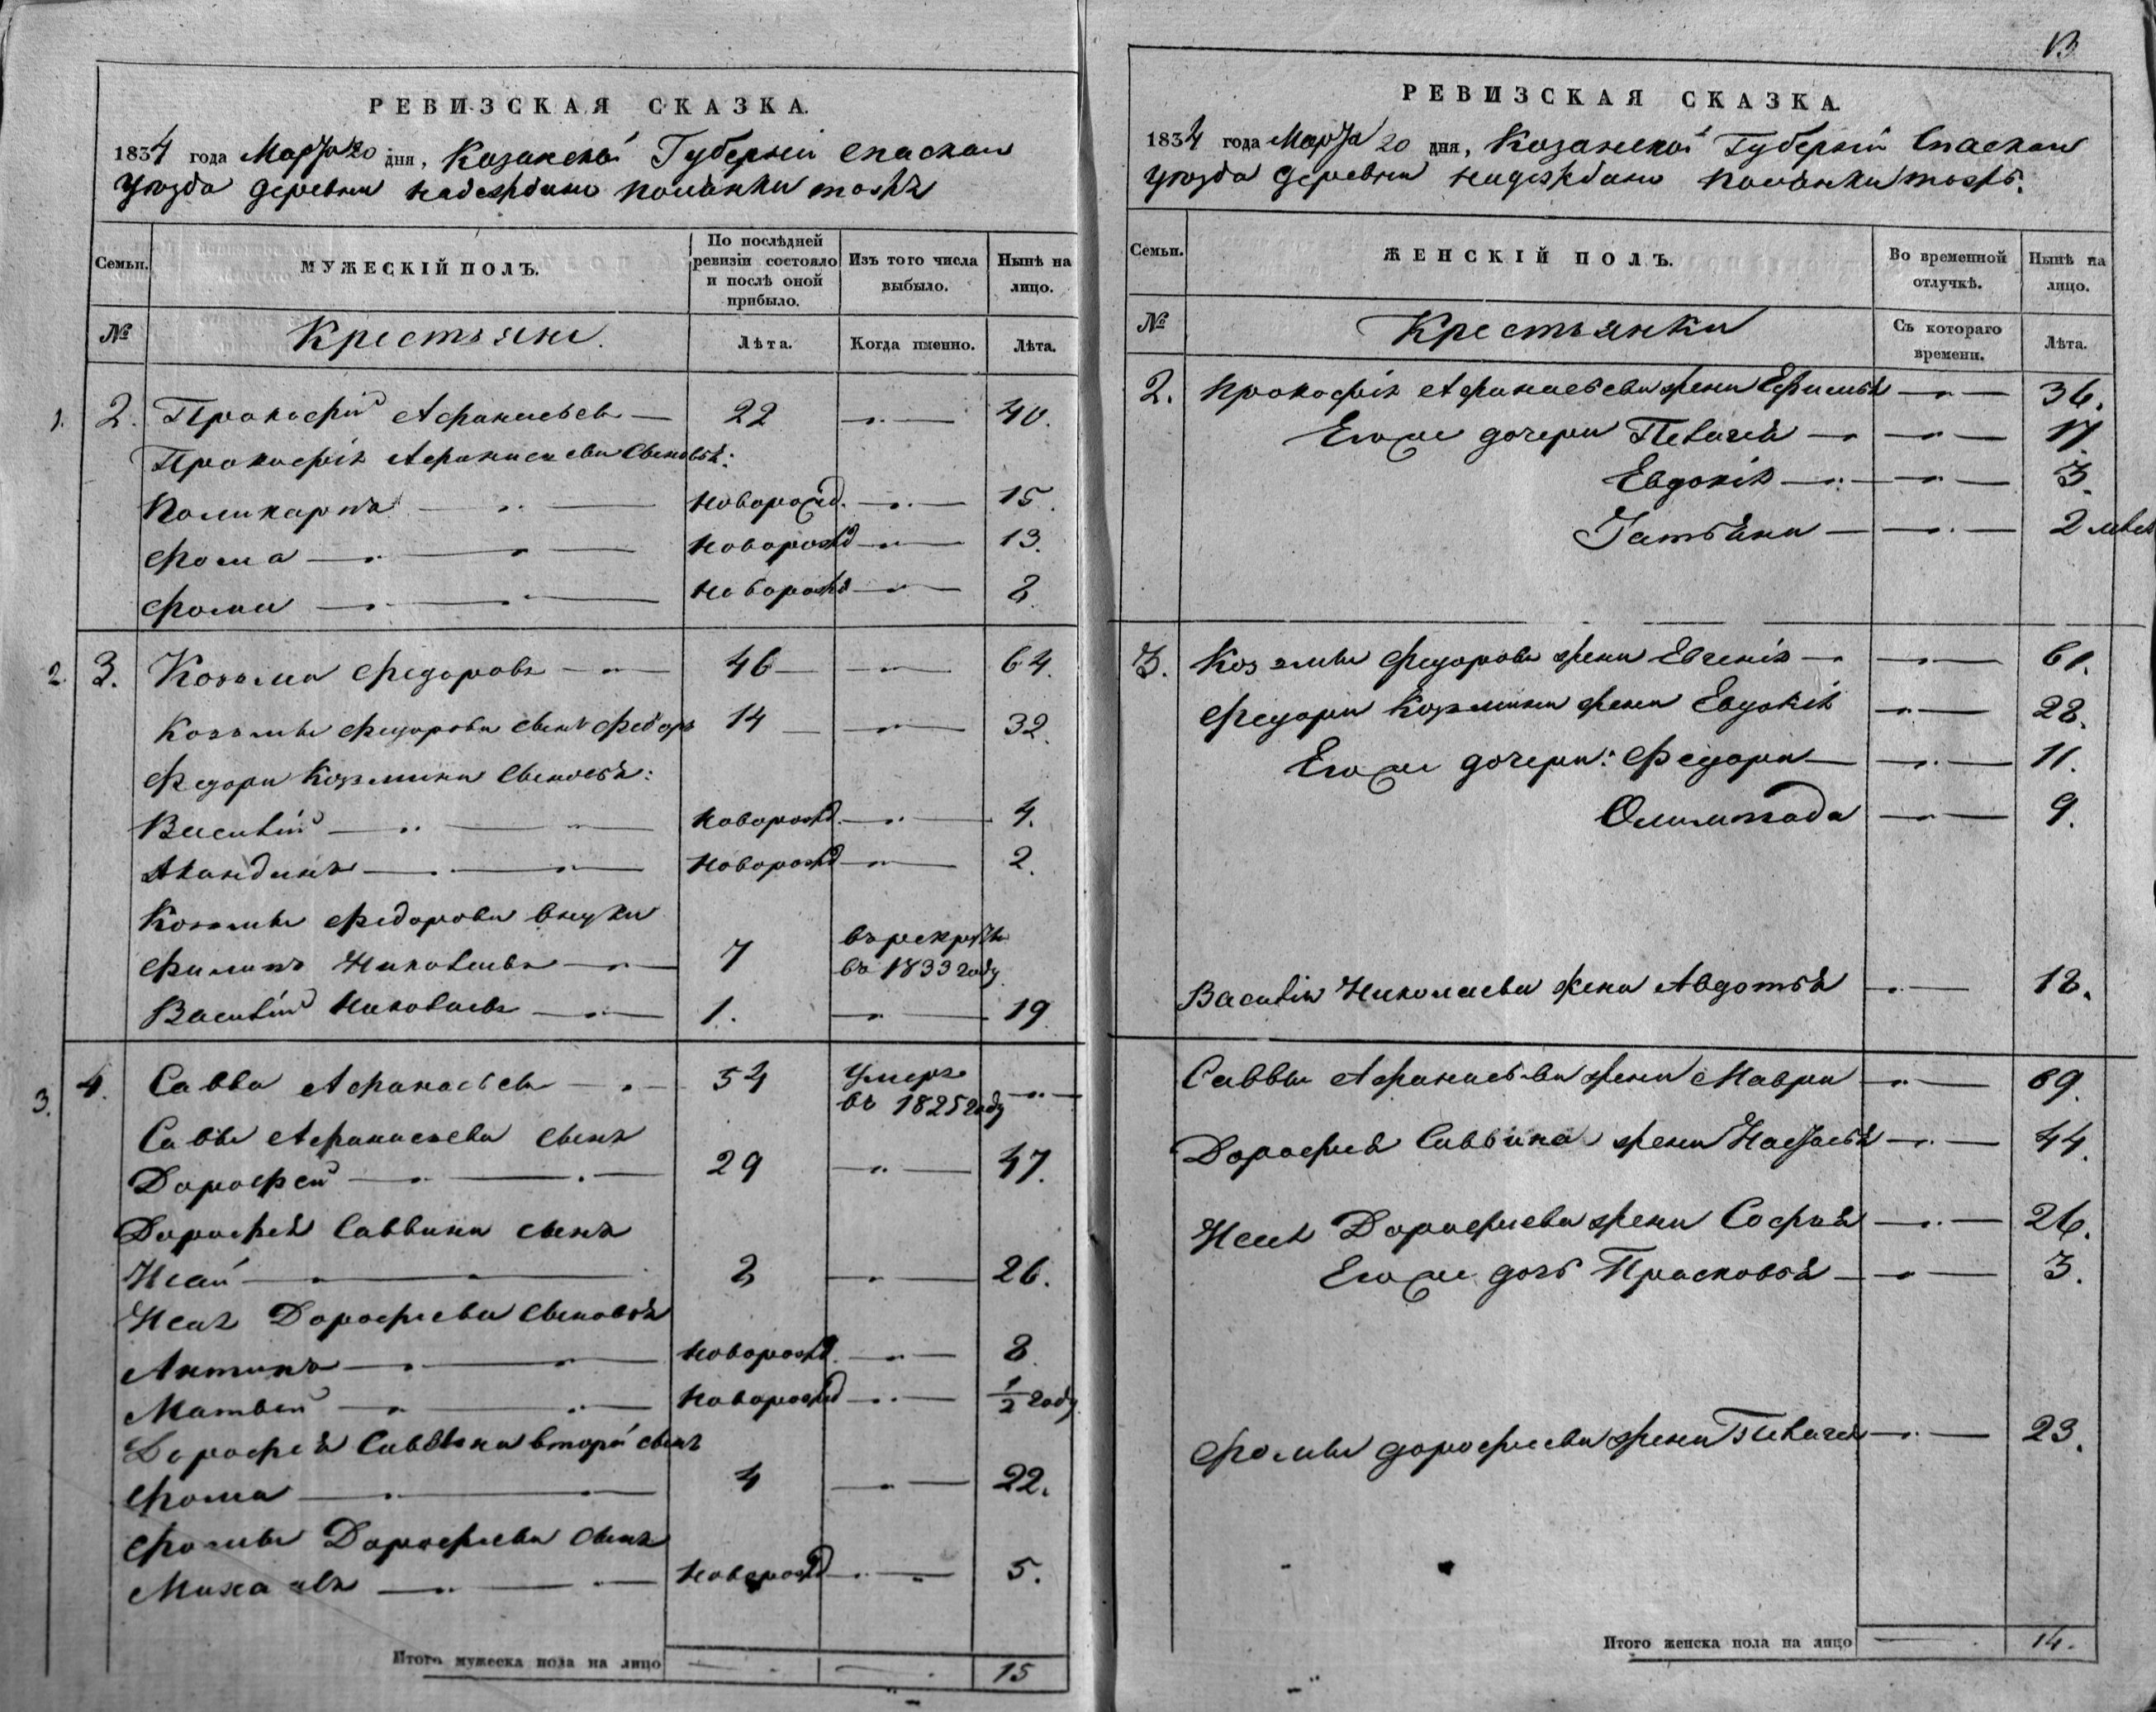 РЕВИЗСКАЯ СКАЗКА.
1834 года Марта 20 дня, Казанской Губерніи Спаскаго
Уѣзда деревни Надеждино
Семьи. МУЖЕСКІЙ ПОЛЪ. По послѣдней ревизіи состояло и послѣ оной прибыло. Изъ того числа выбыло. Нынѣ на лицо.
№ Крестьяне. Лѣта. Когда именно. Лѣта.
1. 2. Прокофій Афанасьевъ 22 40.
Прокофія Афанасьева сыновья:
Поликарпъ новорожд. 15.
Фома новорожд 13.
Фома новорожд 8
2. 3. Козьма Федоровъ 46 64.
Козьмы Федорова сынъ Федоръ 14 32.
Федора Козьмина сыновья:
Василій новорожд. 4.
Акиндинъ новорожд 2.
Козьмы Федорова внуки
Филипъ Николаевъ 7 въ рекруты
въ 1833 году
Василій Николаевъ 1. 19
3. 4. Савва Афанасьевъ 54 Умеръ
въ 1825 году
Саввы Афанасьева сынъ
Дорофей 29 47.
Дорофея Саввина сынъ
Исай 8 26.
Исая Дорофеева сыновья
Антипъ новорожд. 8
Матвей новорожд 1/2 году
Дорофея Саввина второй сынъ
Фома 4 22.
Фомы Дорофеева сынъ
Михайла новорожд 5.
Итого мужеска пола на лицо 15
13
РЕВИЗСКАЯ СКАЗКА.
1834 года Марта 20 дня, Казанской Губерніи Спаскаго
Уѣзда деревни Надеждино
Семьи. ЖЕНСКІЙ ПОЛЪ. Во временной отлучкѣ. Нынѣ на лицо.
№ Крестьянки Съ котораго времени. Лѣта.
2. Прокофія Афанасьева жена Ефимья 36.
Его же дочери Пелагея 17.
Евдокія 3.
Татьяна 2 мѣсяц
3. Козьмы Федорова жена Евгенія 61.
Федора Козьмина жена Евдокія 28.
Его же дочери: Федора 11.
Олимпіада 9.
Василія Николаева жена Авдотья 18.
Саввы Афанасьева жена Мавра 69.
Дорофея Саввина жена Настасья 44.
Исая Дорофеева жена Софья 26.
Его же дочь Прасковья 3.
Фомы Дорофеева жена Пелагея 23.
Итого женска пола на лицо 14.